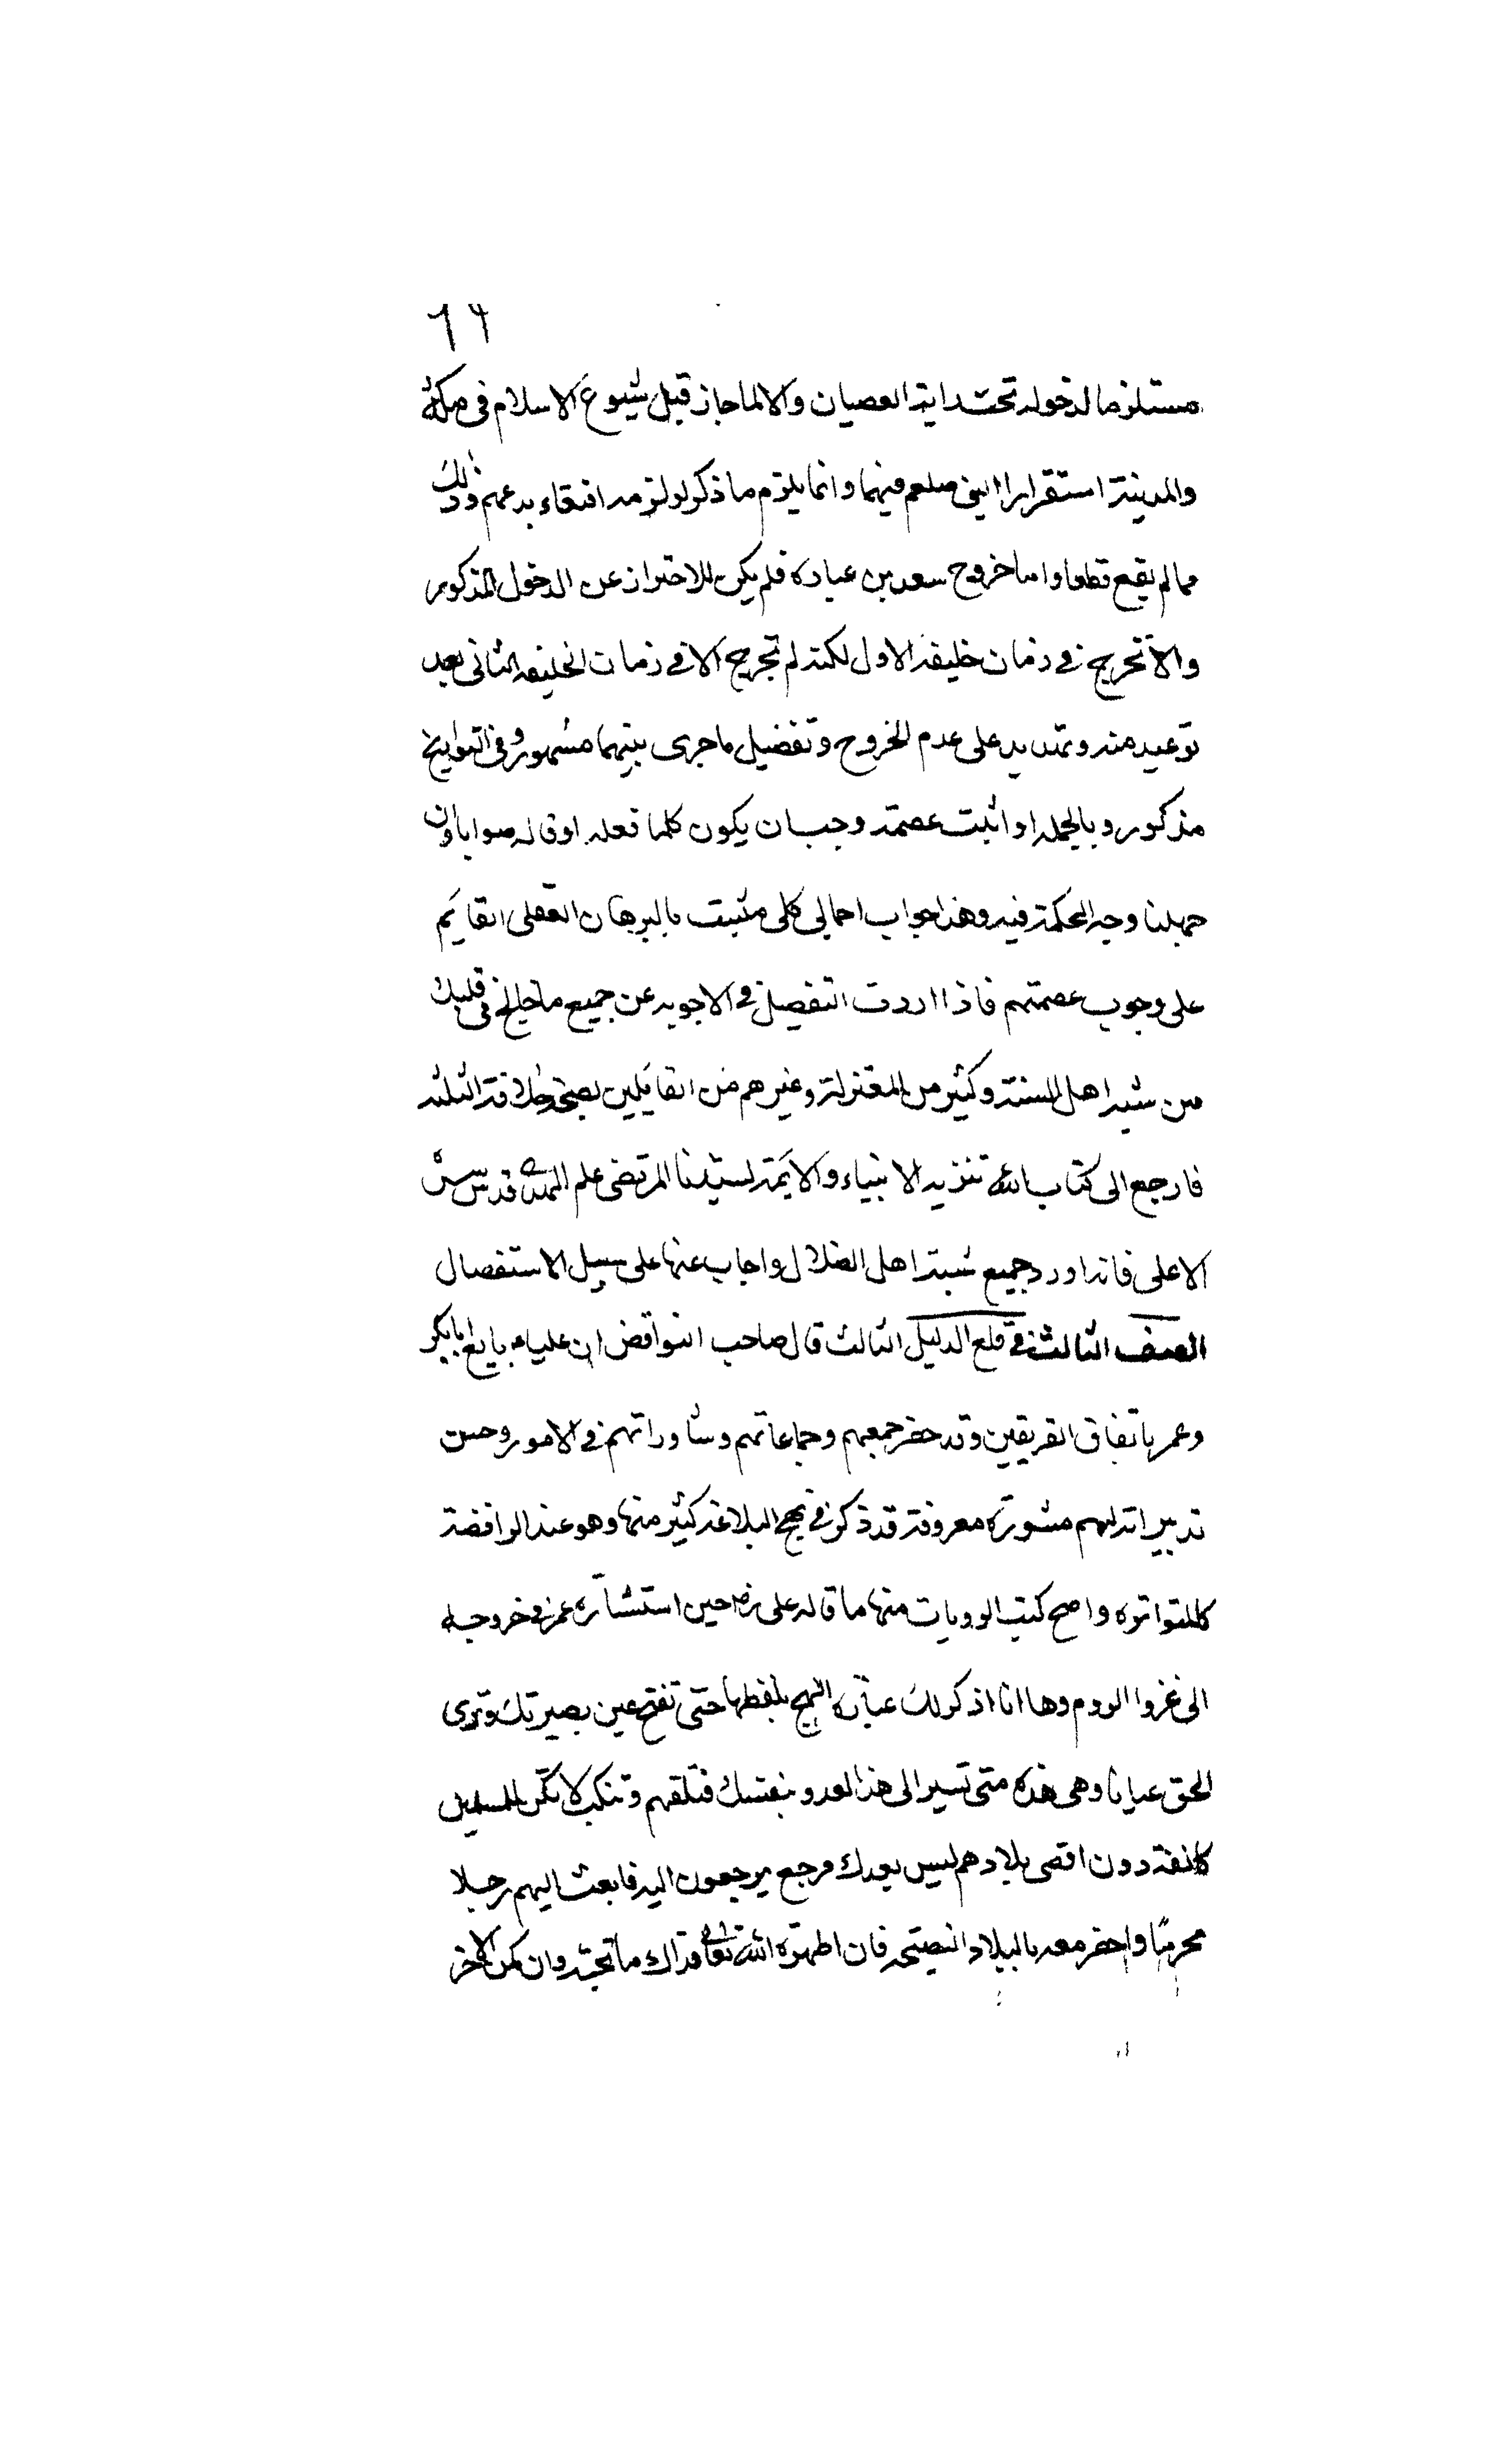 ٦٩
مستلزما لدخوله تحت داية العصيان والا لما جاز قبل شيوع الاسلام في مكة
والمدينة استقرار النبي صلعم فيهما وانما يلزم ما ذكر لو لزمه اقتفاء بدعهم وذلك
مما لم يقع قطعا واما خروج سعد بن عباده فلم يكن للاحتراز عن الدخول المذكور
والا لخرج في زمان خليفة الاول لكنه لم يخرج الا في زمان الخليفة الثاني بعد
توعيد منه وتهديد على عدم الخروج وتفضيل ما جرى بينهما مشهور وفي التواريخ
مذكور وبالجمله اذا ثبت عصمته وجب ان يكون كلما فعله او قاله صوابا وان
جهلنا وجه الحكمة فيه وهذا جواب اجمالي كلى مثبت بالبرهان العقلى القايم
على وجوب عصمتهم فاذا اردت التفصيل في الاجوبه عن جميع ما تخالج في قلبك
من شبه اهل السنة وكثير من المعتزلة وغيرهم من القايلين بصحة خلافة الثلثه
فارجع الى كتاب تنزيه الانبياء والايمة لسيدنا المرتضى علم الهدى قدس سره
الاعلى فانه اورد جميع شبه اهل الضلال واجاب عنها على سبيل الاستفصال
الصنف الثالث في قلع الدليل الثالث قال صاحب النواقض ان عليا بايع ابا بكر
وعمر باتفاق الفريقين وقد حضر جمعهم وجماعاتهم ومشاوراتهم في الامور وحسن
تدبيراته لهم مشورة معروفة قد ذكر في نهج البلاغه كثير منها وهو عند الرافضة
كالمتواتره واصح كتب الرويات منها ما قاله على رضـ حين استشاره عمر في خروجه
الى غزوا الروم وها انا اذكر لك عبارة النهج بلفظها حتى تفتح عين بصيرتك وترى
الحق عيانا وهى هذه متى تسير الى هذا العدو بنفسك فتلقهم وتنكب لا تكن للمسلمين
كانفة دون اقصى بلادهم ليس بعدك مرجع يرجعون اليه فابعث اليهم رجلا
محربا واحفر معه بالبلاد النصيحه فان اظهره الله تعالى فذاك ما تحبه وان تكن الاخر